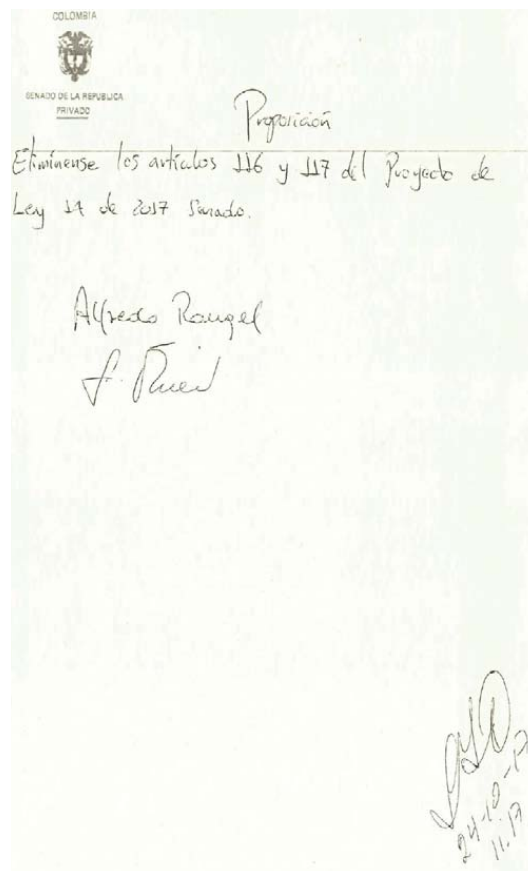 COLOMBIA
SENADO DE LA REPUBLICA
PRIVADO
Proposición
Elimínense los artículos 116 y 117 del Proyecto de
Ley 14 de 2017 Senado.
Alfredo Rangel
24-10-17
11:17